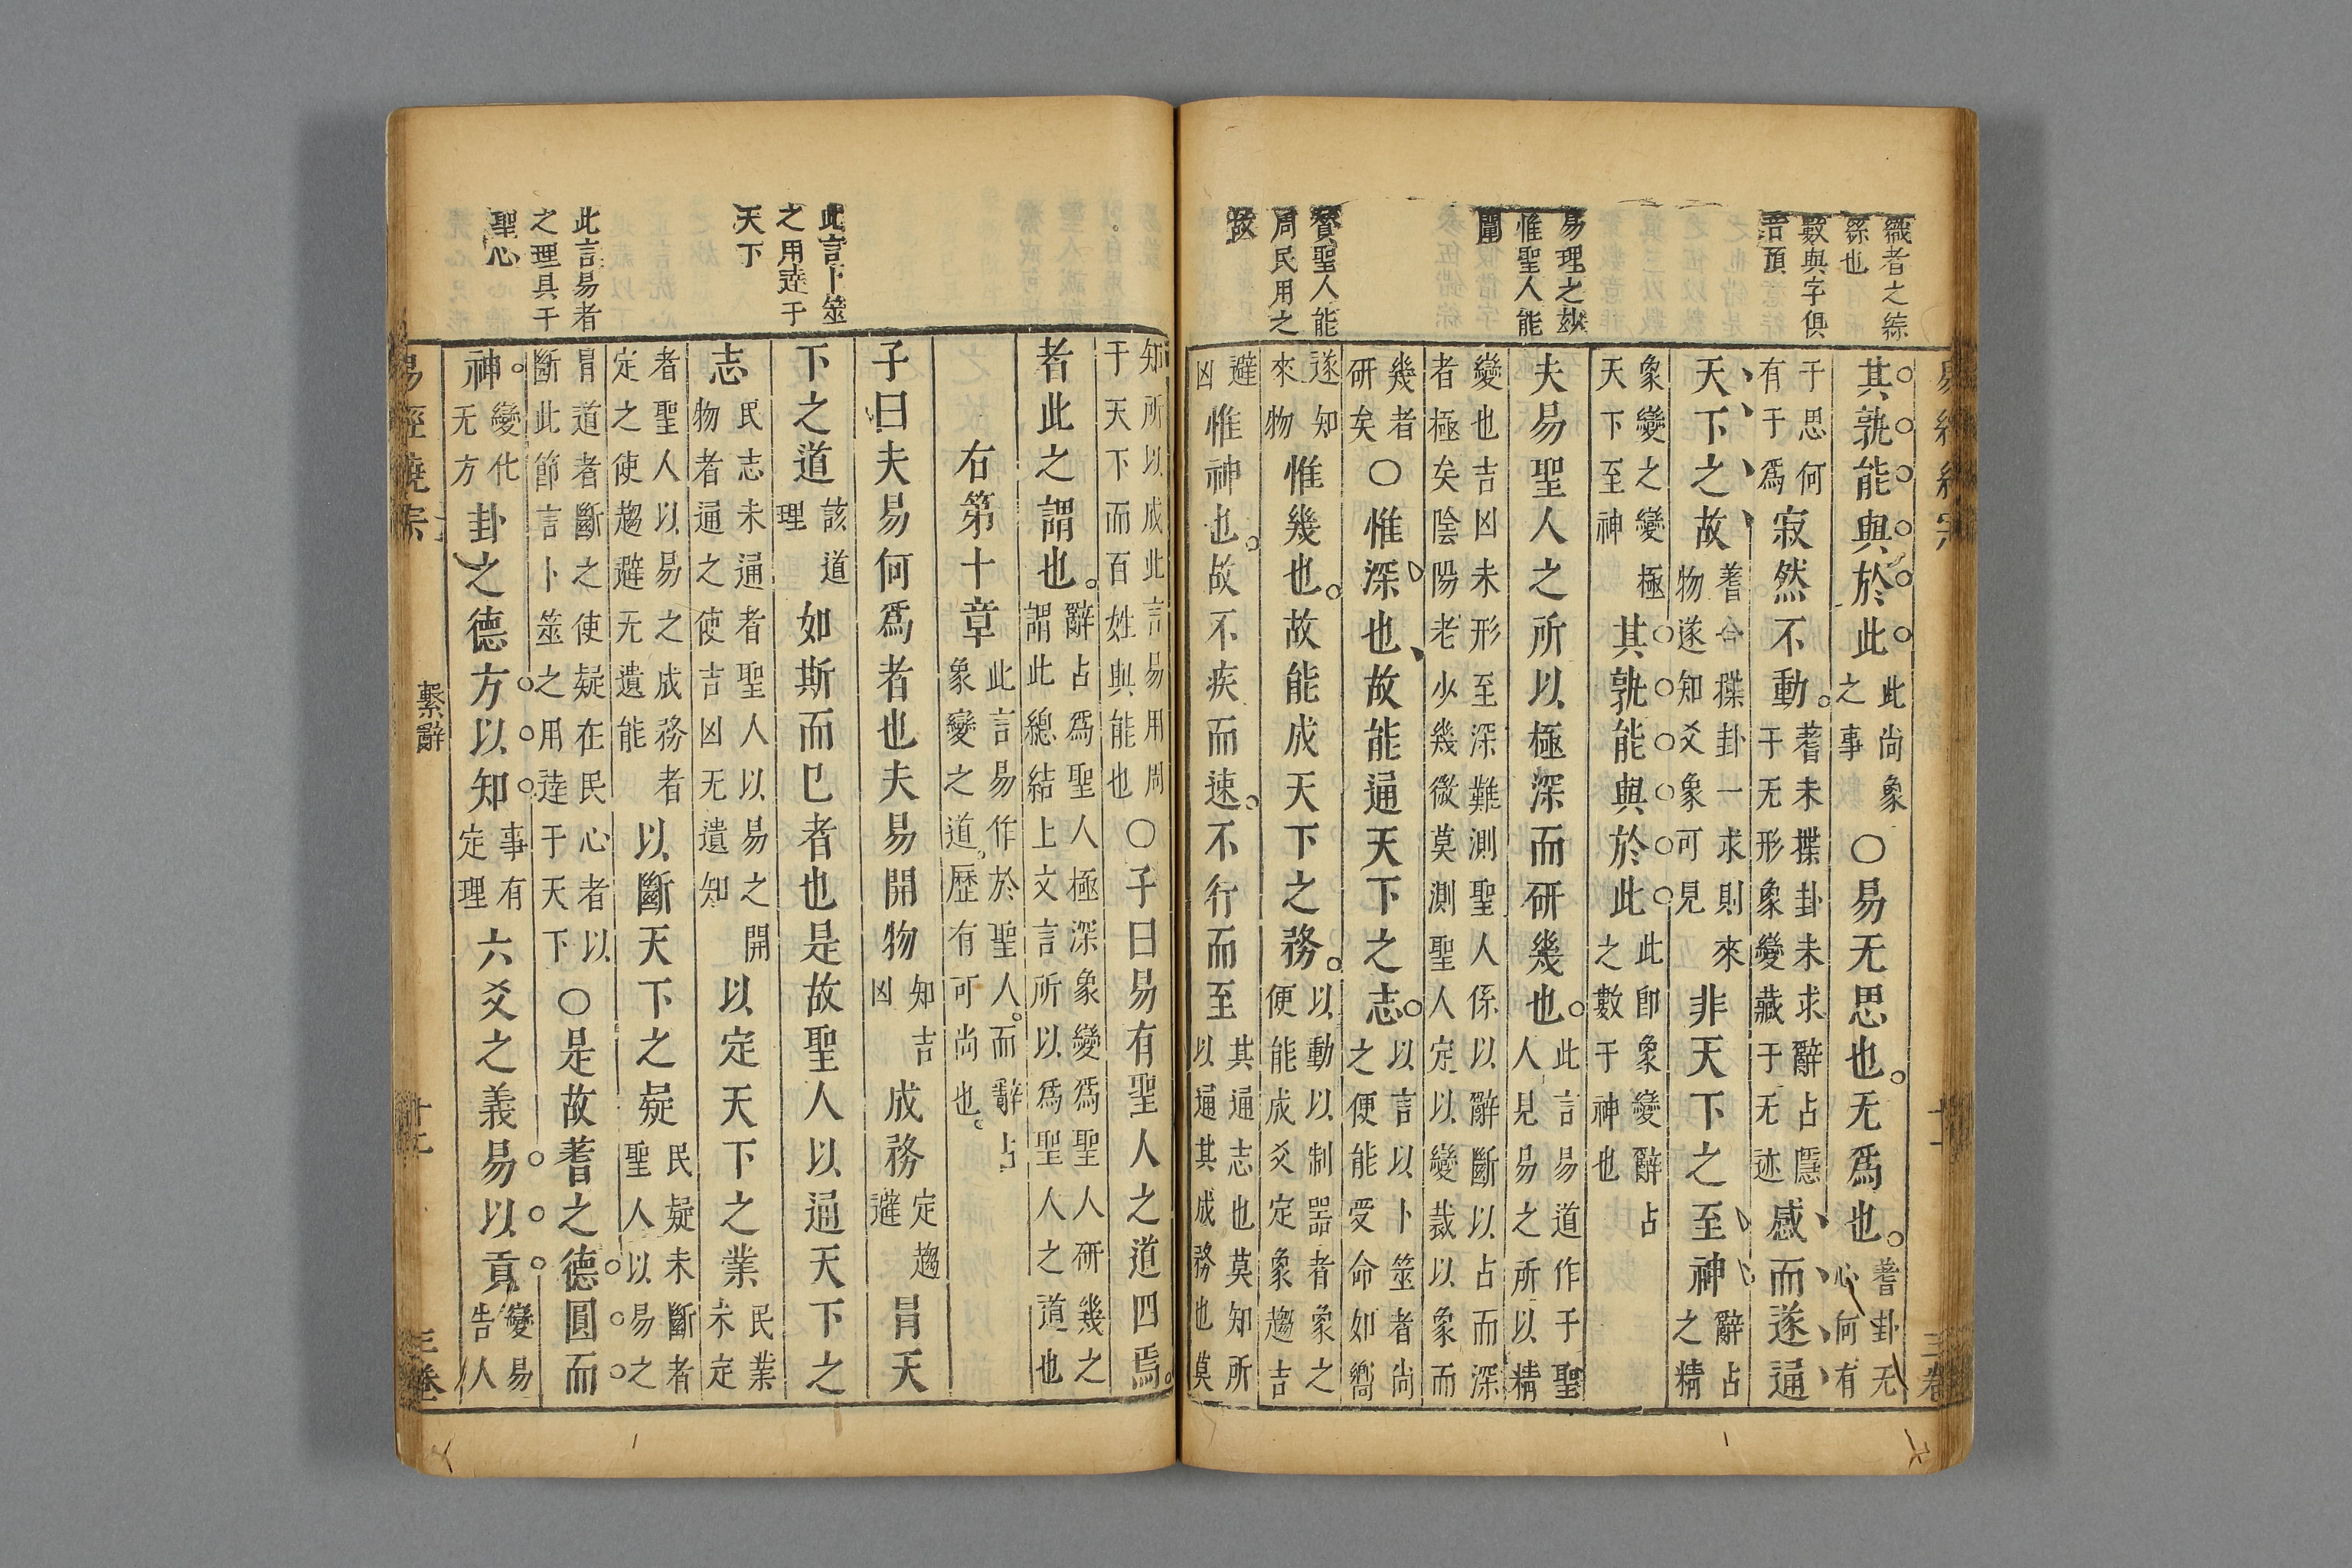 織者之綜
綜也
數與字俱
音預
易理之玅
惟聖人能
闡
贊聖人能
周民用之
故
三卷
其孰能與於此此尚象之事○易无思也无爲也蓍卦无心何有
于思何有于爲寂然不動蓍未揲卦未求辭占隱于无形象變藏于无迹感而遂通
天下之故蓍合揲卦一求則來物遂知爻象可見非天下之至神辭占之精
象變之變極天下至神其孰能與於此此卽象變辭占之數于神也
夫易聖人之所以極深而研幾也此言易道作于聖人見易之所以精
變也吉凶未形至深難測聖人係以辭斷以占而深者極矣陰陽老少幾微莫測聖人定以變裁以象而
幾者研矣○惟深也故能通天下之志以言以卜筮者尚之便能受命如嚮
遂知來物惟幾也故能成天下之務以動以制噐者象之便能成爻定象趨吉
避凶惟神也故不疾而速不行而至其通志也莫知所以通其成務也莫
此言卜筮
之用達于
天下
此言易者
之理具于
聖心
知所以成此言易用周于天下而百姓與能也○子曰易有聖人之道四焉
者此之謂也辭占爲聖人極深象變爲聖人研幾之謂此總結上文言所以爲聖人之道也
右第十章此言易作於聖人而辭占象變之道歷有可尚也
子曰夫易何爲者也夫易開物知吉凶成務定趨避冐天
下之道該道理如斯而已者也是故聖人以通天下之
志民志未通者聖人以易之開物者通之使吉凶无遺知以定天下之業民業未定
者聖人以易之成務者定之使趨避无遺能以斷天下之疑民疑未斷者聖人以易之
冐道者斷之使疑在民心者以斷此節言卜筮之用達于天下○是故蓍之德圓而
神變化无方卦之德方以知事有定理六爻之義易以貢變易告人
易經曉宗 繫辭 三卷